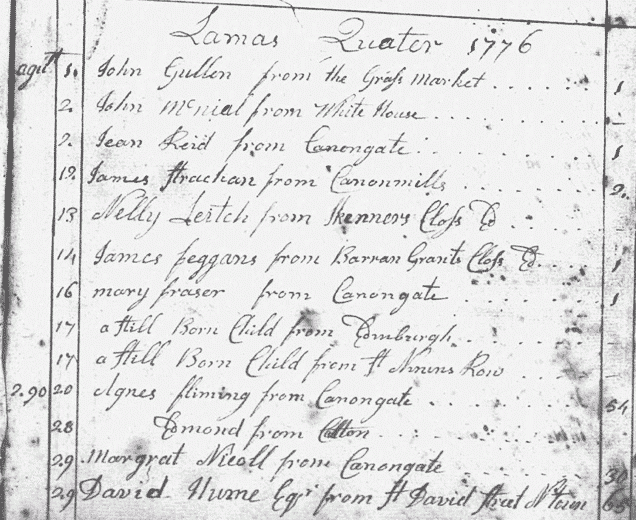 Lamas Quater 1776
agust 1. John Gullen from the Grass market 1
2. John McNial from White House
2. Jean Reid from Canongate 1
12. James Strachan from Canonmills 2.
13 Nelly Leitch from Skenners Closs Ed
14 James feggans from Barran Grants Closs Ed 1
16 mary fraser from Canongate 1
17 a Still Born Child from Edinburgh
17 a Still Born Child from St Ninins Row
2.90 20 Agnes fliming from Canongate 54
28 Edmond from Calton
29 Margrat Nicoll from Canongate 30
29 David Hume Eqr from St David street N town 65